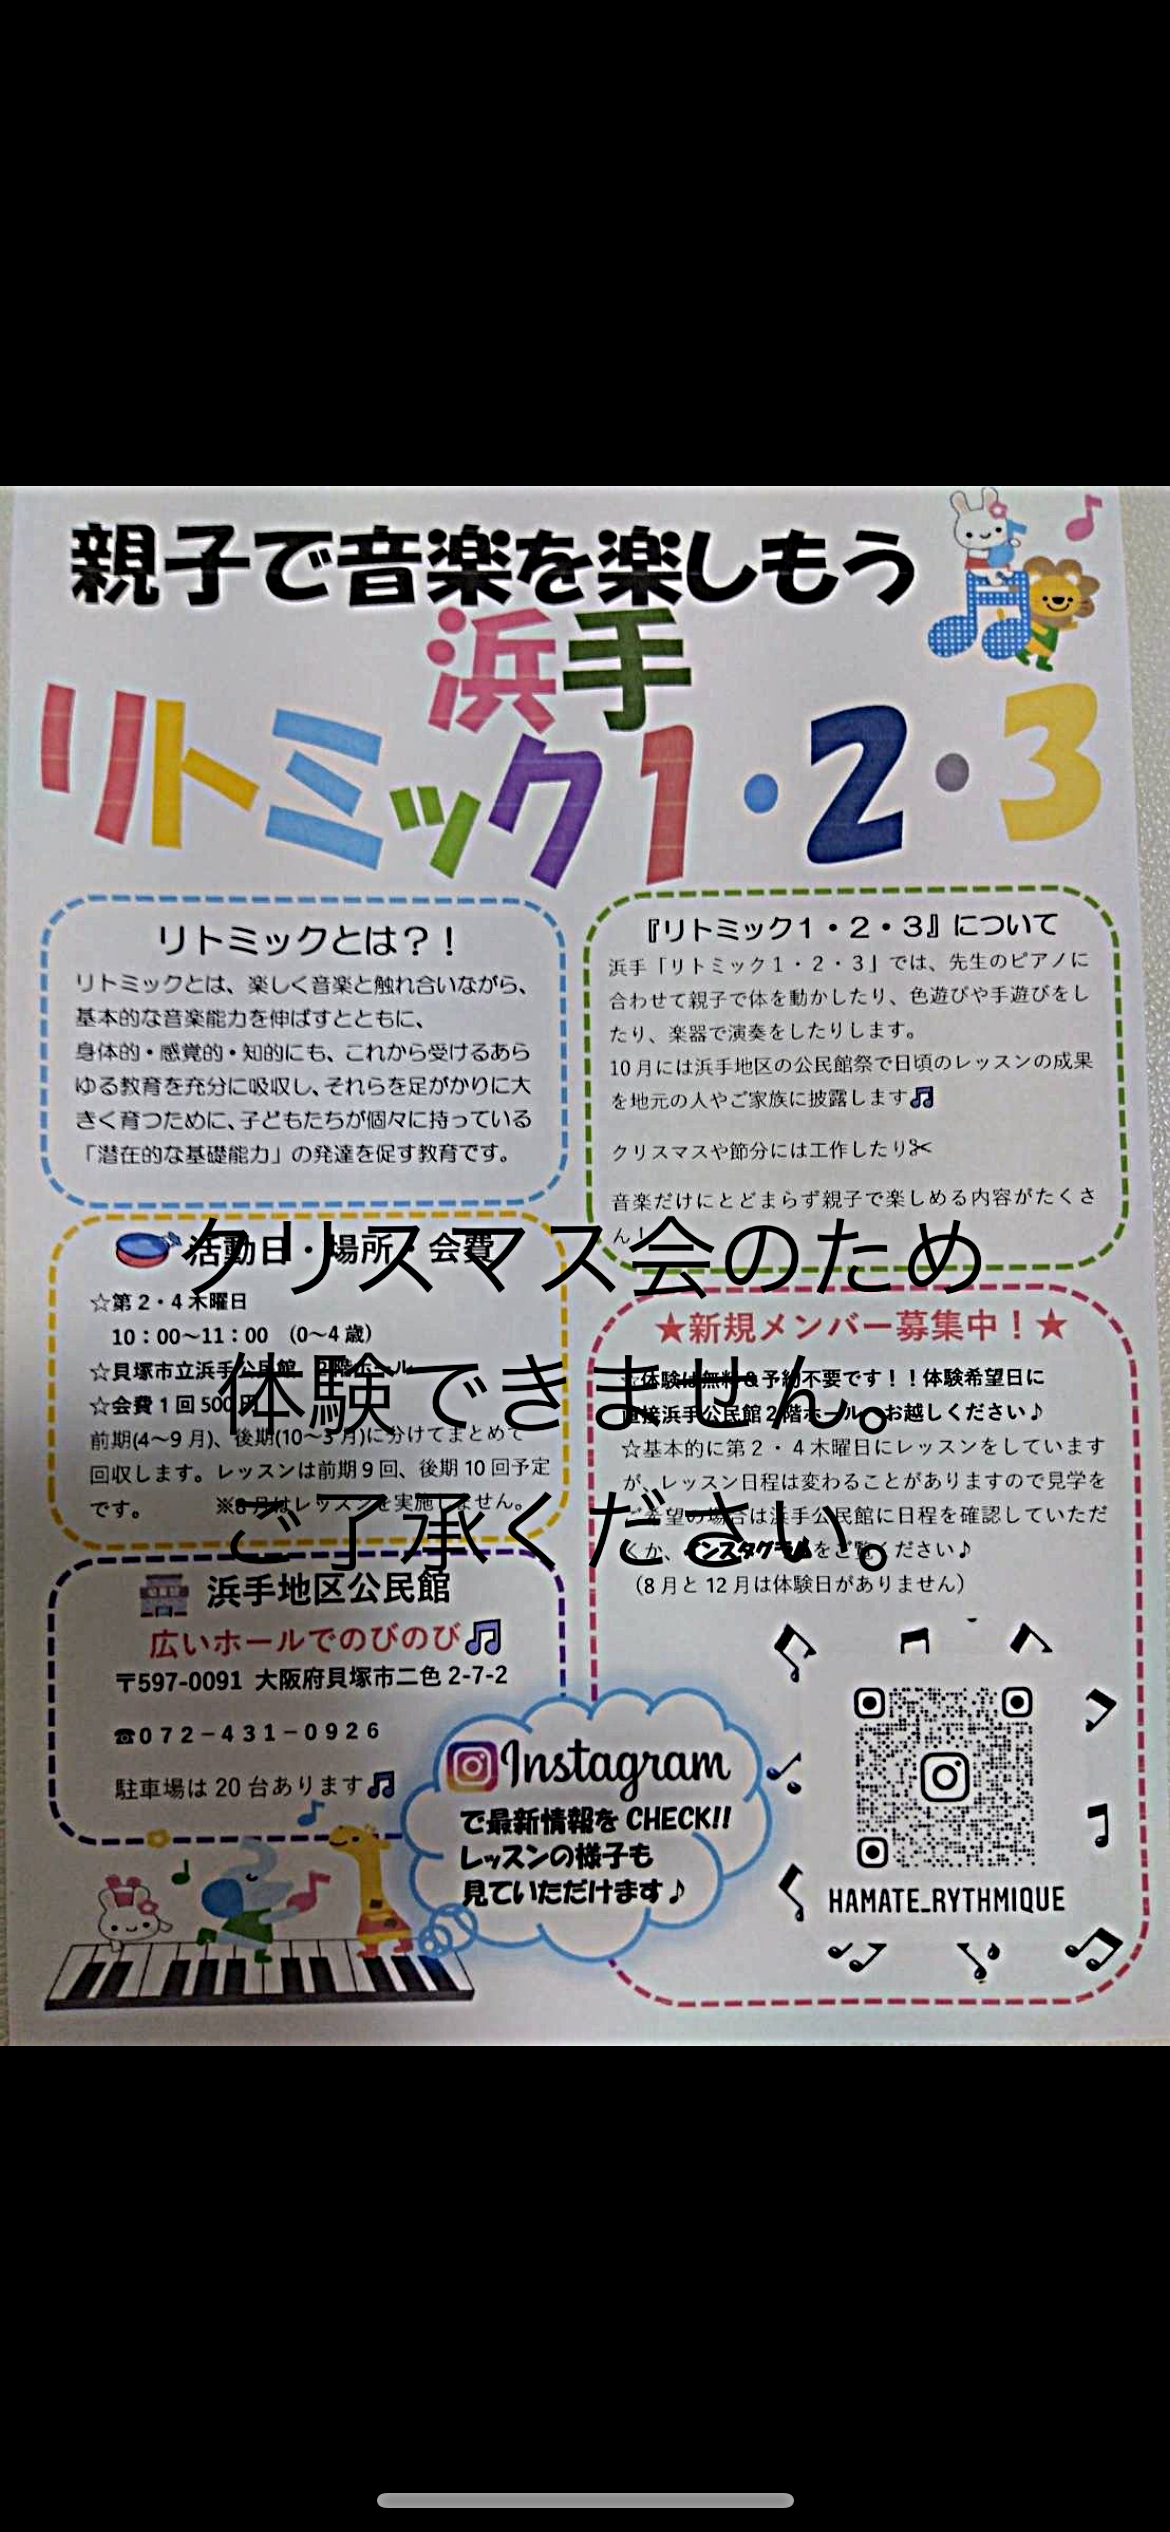 親子で音楽を楽しもう
浜手
リトミック1・2・3
リトミックとは？！
リトミックとは、楽しく音楽と触れ合いながら、
基本的な音楽能力を伸ばすとともに、
身体的・感覚的・知的にも、これから受けるあら
ゆる教育を充分に吸収し、それらを足がかりに大
きく育つために、子どもたちが個々に持っている
「潜在的な基礎能力」の発達を促す教育です。
『リトミック1・2・3』について
浜手「リトミック1・2・3」では、先生のピアノに
合わせて親子で体を動かしたり、色遊びや手遊びをし
たり、楽器で演奏をしたりします。
10月には浜手地区の公民館祭で日頃のレッスンの成果
を地元の人やご家族に披露します🎵
クリスマスや節分には工作したり✂
音楽だけにとどまらず親子で楽しめる内容がたくさ
ん！
クリスマス会のため
体験できません。
ご了承ください。
活動日・場所・会費
☆第2・4木曜日
10：00～11：00 （0～4歳）
☆貝塚市立浜手公民館 2階ホール
☆会費1回500円
前期(4～9月)、後期(10～3月)に分けてまとめて
回収します。レッスンは前期9回、後期10回予定
です。 ※8月はレッスンを実施しません。
★新規メンバー募集中！★
☆体験は無料＆予約不要です！！体験希望日に
直接浜手公民館2階ホールへお越しください♪
☆基本的に第2・4木曜日にレッスンをしています
が、レッスン日程は変わることがありますので見学を
ご希望の場合は浜手公民館に日程を確認していただ
くか、インスタグラムをご覧ください♪
（8月と12月は体験日がありません）
浜手地区公民館
広いホールでのびのび🎵
〒597-0091 大阪府貝塚市二色2-7-2
☎072－431－0926
駐車場は20台あります🎵
Instagram
で最新情報を CHECK!!
レッスンの様子も
見ていただけます♪
HAMATE_RYTHMIQUE